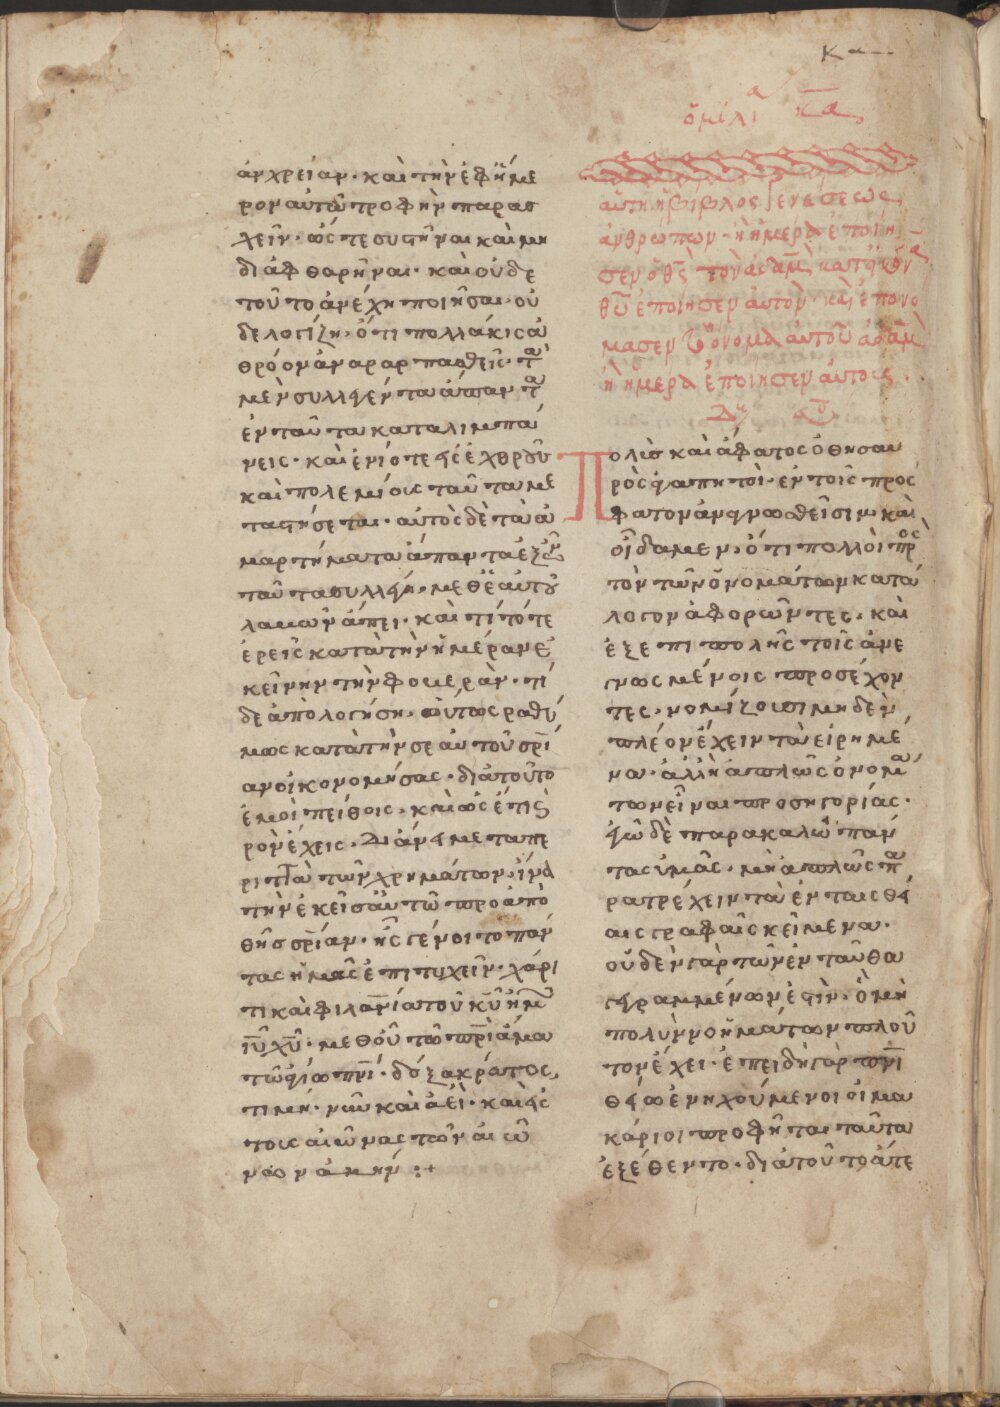 κα
ὁμιλία κα
ἀνχρείαν· καὶ τὴν ἐφήμε
ρον αὐτῶ τροφὴν παρασ
χεῖν· ὥς τε συστῆναι καὶ μὴ
διαφθαρῆναι· καὶ οὐδε
τοῦτο ἀνέχη ποιῆσαι· οὐ
δε λογίζη, ὅτι πολλάκις ἀ
θρόον ἀναραρπασθεὶς· τὰ
μὲν συλλεγέντα ἅπαντα
ἐνταῦτα καταλιμπά
νεις· καὶ ἐνίοτε εἰς ἐχθροὺς
καὶ πολεμίοις ταῦτα με
ταστήσεται· αὐτὸς δὲ τὰ ἁ
μαρτήματα ἅπαντα ἐξ ὧν
ταῦτα συλλέγη, μεθ ἑαυτοῦ
λαμὼν ἄπει· καὶ τί τότε
ἐρεῖς κατὰ τὴν ἡμέραν ἐ
κείνην τὴν φοβερὰν· τί
δε ἀπολογήση, οὕτως ραθύ
μως κατὰ τὴν σεαυτοῦ σρί
αν οἰκονομήσας· διατοῦτο
ἐμοὶ πείθοις· καὶ ὡς ἔτι και
ρὸν ἔχεις· Διάνειμε τὰ πε
ριττὰ τῶν χρημάτων· ἵνα
τὴν ἐκεῖ σαυτῶ προαπο
θῆς σρίαν· ἧς γένοιτο πάν
τας ἡμᾶς ἐπιτυχεῖν· χάρι
τι καὶ φιλανία τοῦ κυ ἡμῶν
ιυ χυ· μεθ οὗ τῶ πρι ἅμα
τῶ ἁγίω πνι· δόξα κράτος,
τιμή· νῦν καὶ ἀεὶ· καὶ εἰς
τοὺς αἰῶνας τῶν αἰώ
νων ἀμήν :+
αὕτη ἡ βίβλος γενέσεως
ἀνθρώπων· ἡ ἡμέρα ἐποίη
σεν ὁ θς τὸν ἀδαμ, κατ εἰκόνα
θυ ἐποίησεν αὐτόν· καὶ ἐπονο
μασεν τὸ ὄνομα αὐτοῦ ἀδαμ
ἡ ἡμέρα ἐποίησεν αὐτούς.
Πολὺς καὶ ἄφατος ὁ θησαυ
ρὸς ἀγαπητοὶ· ἐν τοῖς προς
φατον ἀναγνωσθεῖσιν· καὶ
οἶδαμεν, ὅτι πολλοὶ πρὸς
τὸν τῶν ὀνομάτων κατά
λογον ἀφορῶντες· καὶ
ἐξ ἐπιπολῆς τοῖς ἀνε
γνωσμένοις προσέχον
τες· νομίζουσι μηδὲν
πλέον ἔχειν τὰ εἰρημέ
να· ἀλλ ἢ ἁπλῶς ὀνομά
των εἶναι προσηγορίας·
ἐγὼ δὲ παρακαλῶ πάν
τας ὑμᾶς· μὴ ἁπλῶς πα
ρατρέχειν τὰ ἐν ταῖς θεί
αις γραφαῖς κείμενα·
οὐδὲν γὰρ τῶν ἐνταῦθα
γεγραμμένων ἐστὶν, ὃ μὴ
πολὺν νοημάτων πλοῦ
τον ἔχει· ἐπειδὴ γὰρ πνι
θείω ἐνηχούμενοι οἱ μα
κάριοι προφῆται ταῦτα
ἐξέθεντο· διατοῦτο ἅτε